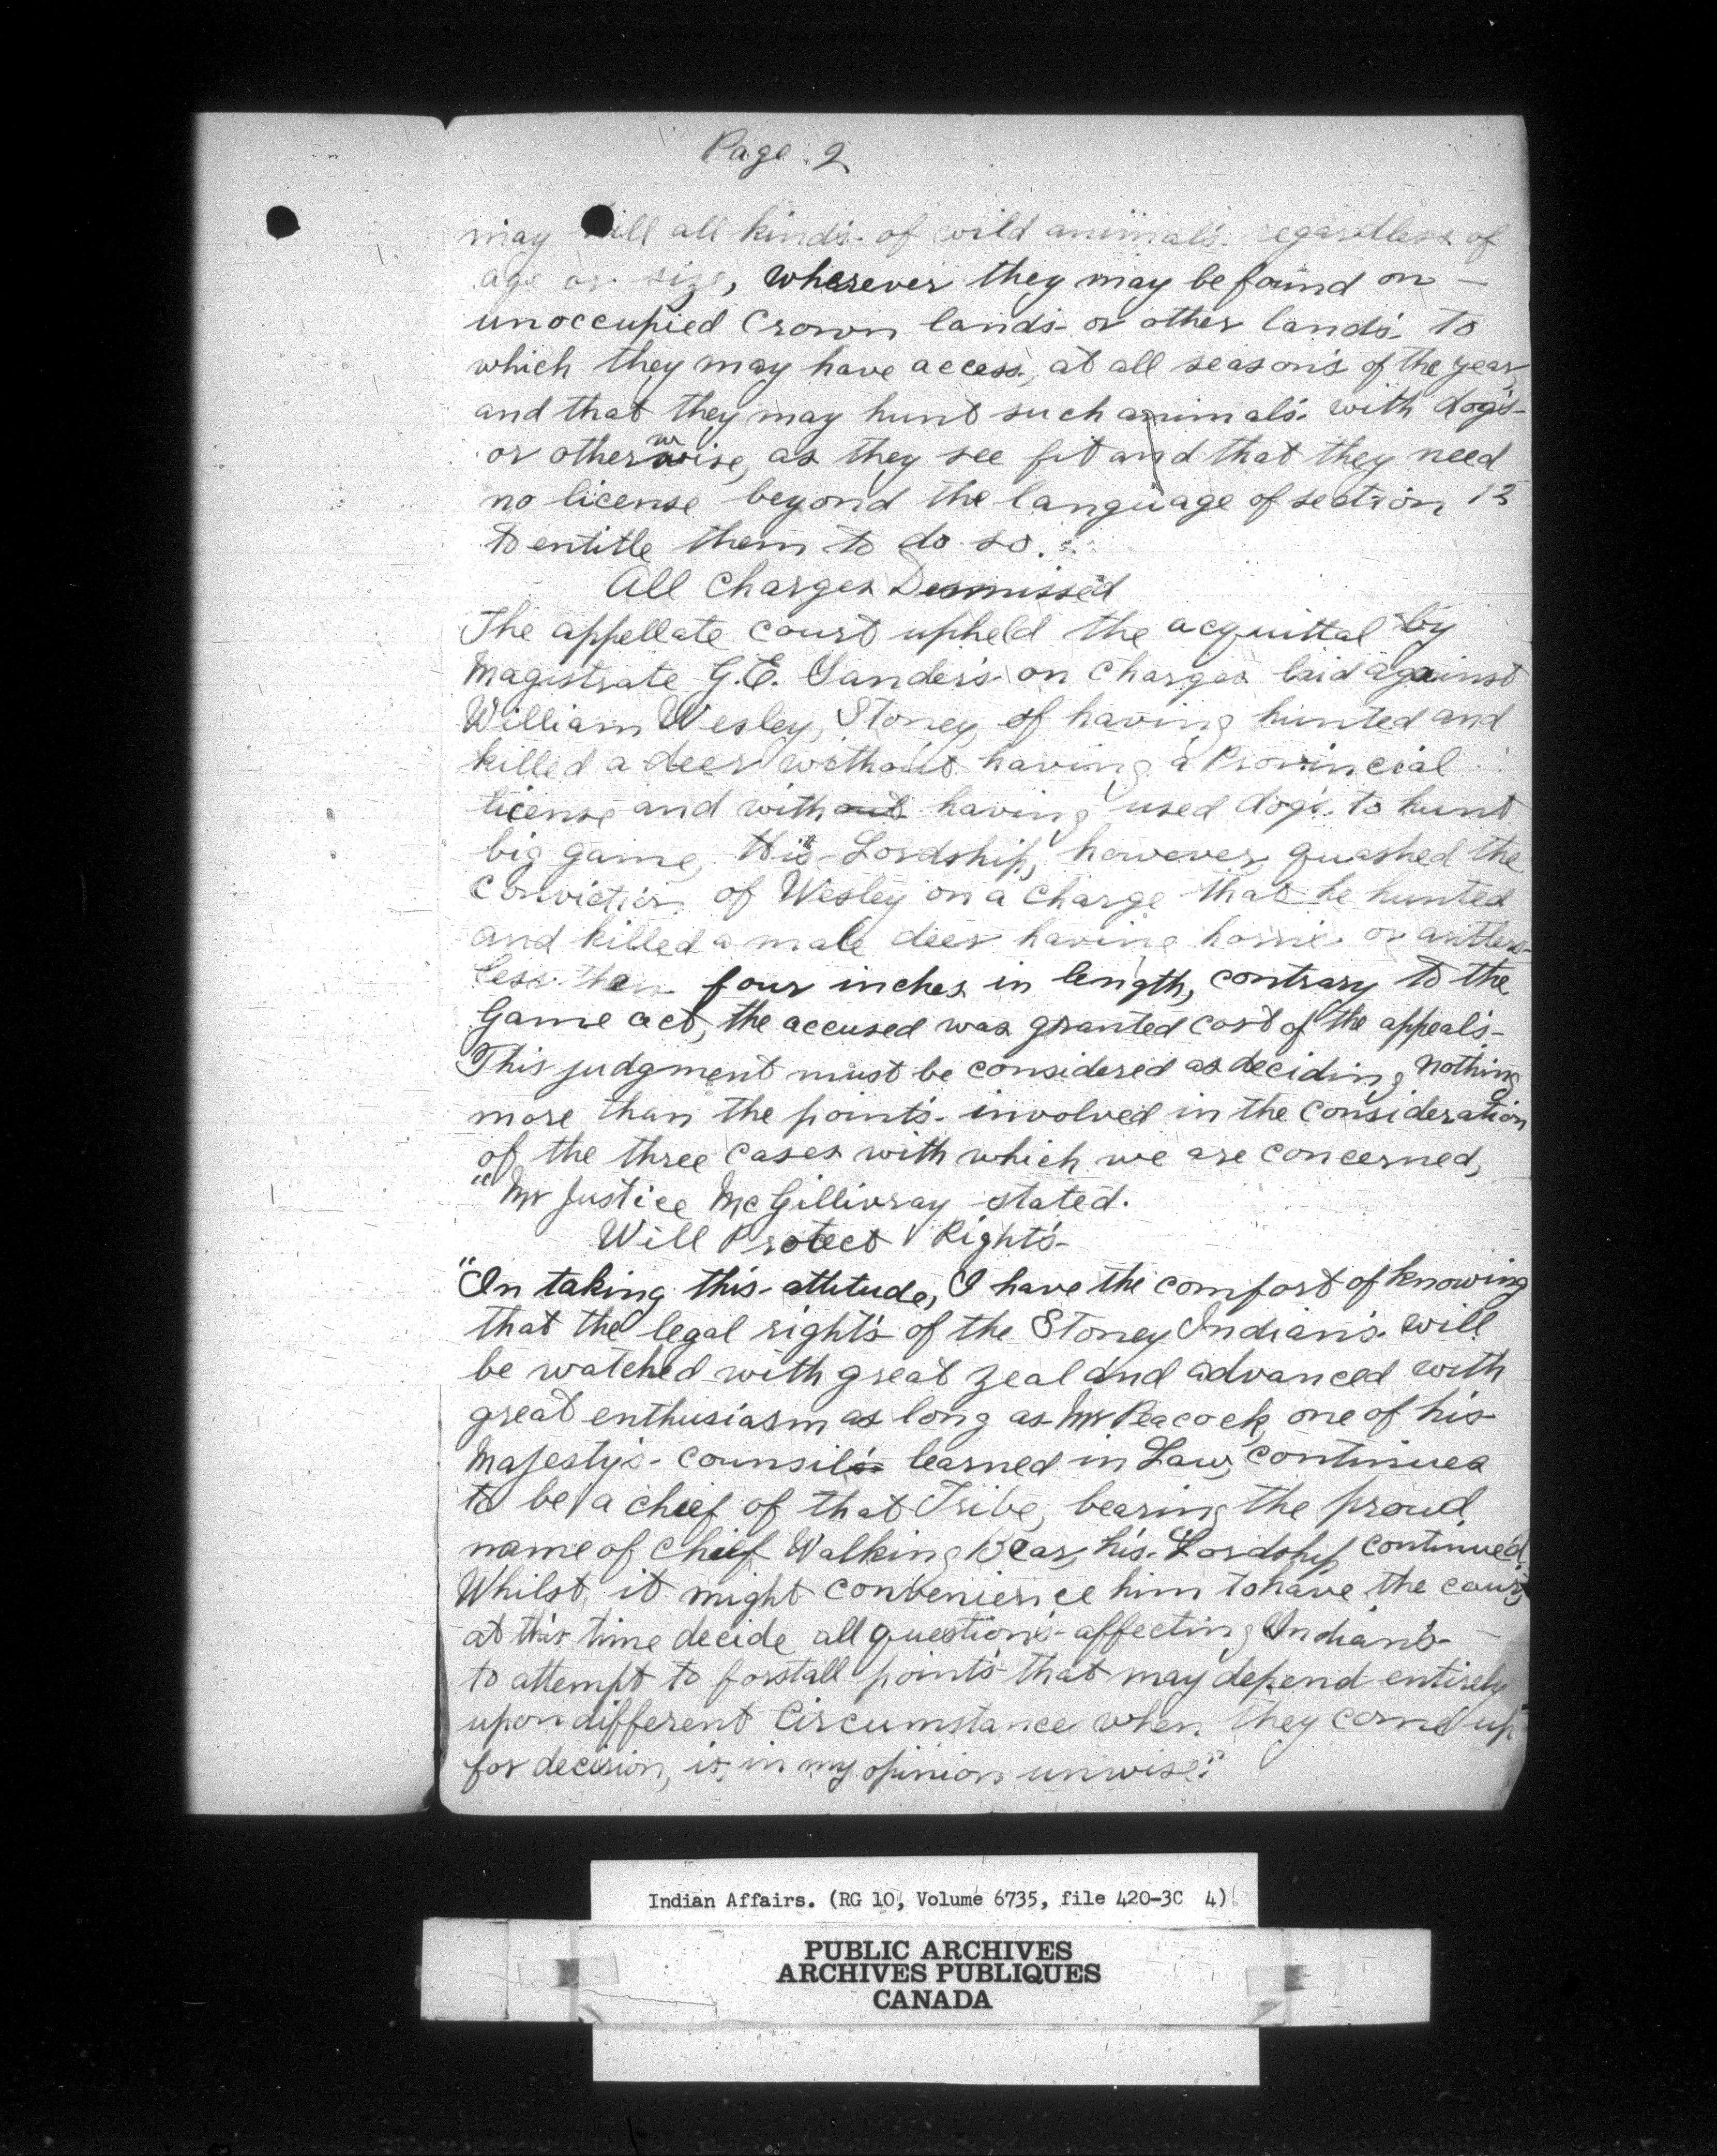 Page. 2
may kill all kind's. of wild animal's. regardless of
age or size, wherever they may be found on —
unoccupied Crown land's or other land's. to
which they may have access, at all season's of the year,
and that they may hunt such animal's. with dog's-
or otherwise, as they see fit and that they need
no license beyond the language of section 12
to entitle them to do so.
All Charges Dismissed
The appellate court upheld the acquittal by
Magistrate G.E. Sander's on Charges laid against
William Wesley, Stoney, of having hunted and
killed a deer without having a Provincial
license and with having used dog's. to hunt
big game, His Lordship, however, quashed the
Conviction of Wesley on a charge that he hunted
and killed a male deer having horns or antlers-
less than four inches in length, contrary to the
Game act, the accused was granted cost of the appeal's-
This judgment must be considered as deciding nothing
more than the point's- involved in the consideration
of the three cases with which we are concerned,
" Mr Justice McGillivray stated.
Will Protect Right's-
"In taking this attitude, I have the comfort of knowing
that the legal right's of the Stoney Indian's. will
be watched with great zeal and advanced with
great enthusiasm as long as Mr Peacock, one of his
Majesty's- counsil learned in Law, continues
to be a chief of that Tribe, bearing the proud
name of Chief Walking Bear, his. Lordship continued.
Whilst, it might convenience him to have the court,
at this time decide all question's- affecting Indian's-
to attempt to forstall point's- that may depend entirely
upon different Circumstance when they come up
for decision, is, in my opinion unwise."
Indian Affairs. (RG 10, Volume 6735, file 420-3C 4)
PUBLIC ARCHIVES
ARCHIVES PUBLIQUES
CANADA